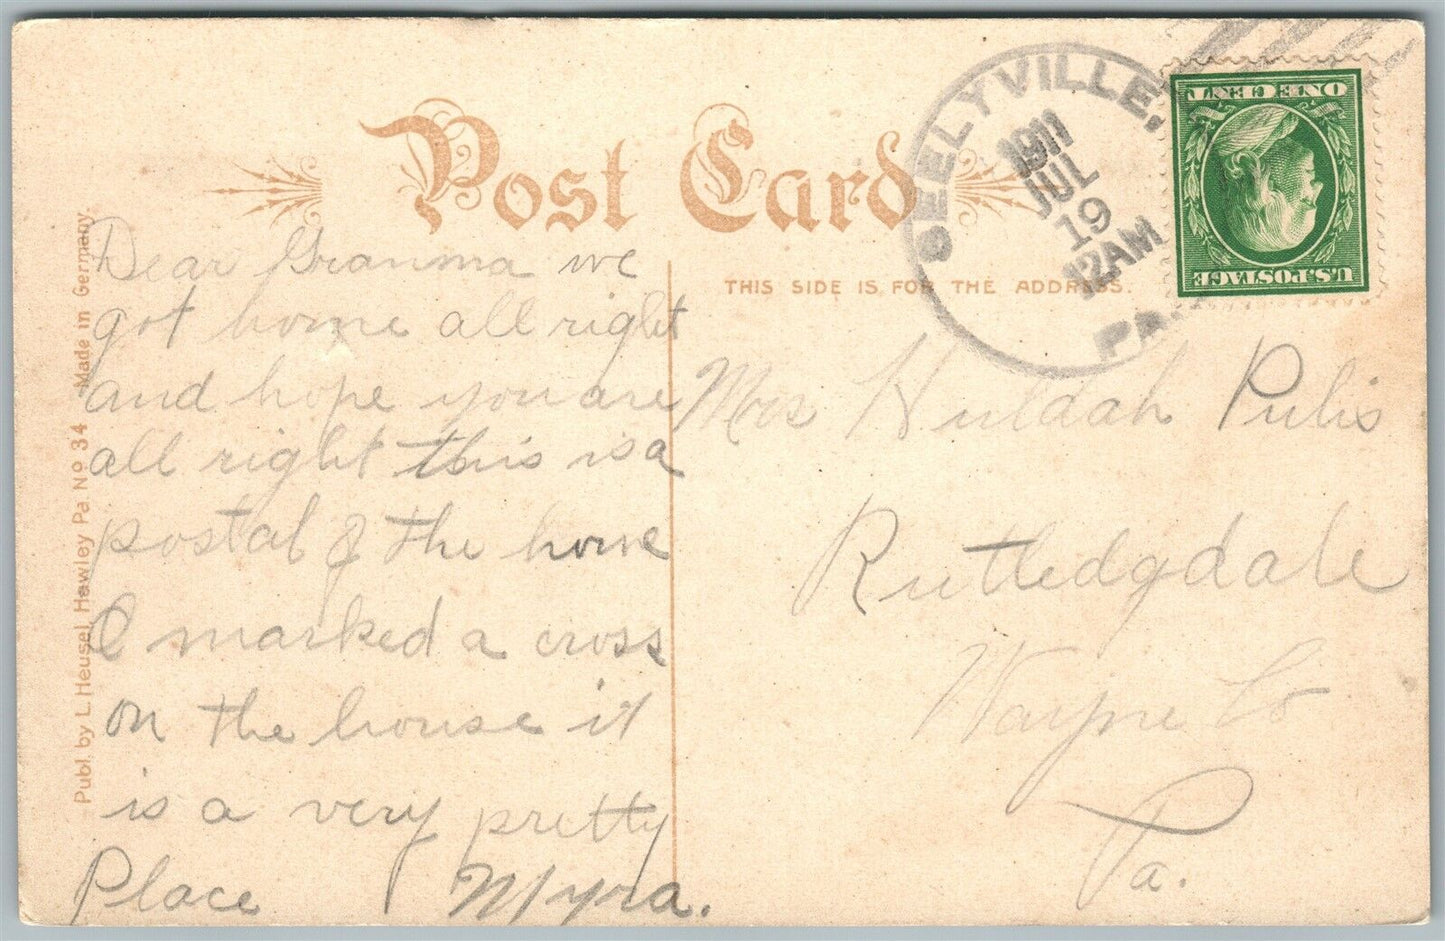 Post Card
THIS SIDE IS FOR THE ADDRESS.
SEELYVILLE,
1911
JUL
19
12AM
PA.
U.S.POSTAGE
ONE CENT
Publ. by L. Heusel Hawley Pa. No 34 Made in Germany.
Dear Granma we
got home all right
and hope you are
all right this is a
postal of the home
I marked a cross
on the house it
is a very pretty
Place Myra.
Mrs Huldah Pulis
Rutledgdale
Wayne Co
Pa.